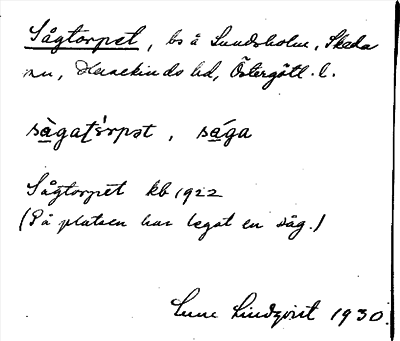 Sågtorpet, bs å Lundsholm, Skeda
sn, Hanekinds hd, Östergötl. l.
Sågtorpet kb 1922
(På platsen har legat en såg.)
Sune Lindqvist 1930.